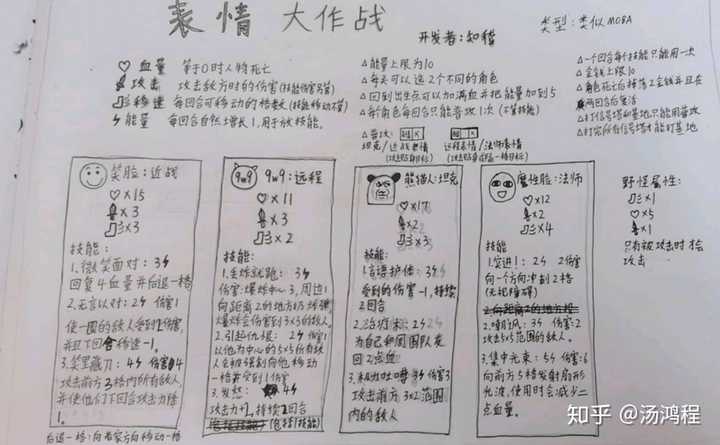 表情 大作战
开发者:知稽
类型:类似MOBA
♡血量 等于0时人物死亡
攻击 攻击敌方时的伤害(技能伤害另算)
移速 每回合可移动的格数(技能移动不算)
能量 每回合自然增长1,用于放技能。
△能量上限为10
△每人可以选2个不同的角色
△回到出生点可以加满血并把能量加到5
△每角色每回合只能普攻1次(不算技能)
△普攻:
坦克/近战表情
远程表情/法师表情
△一个回合每个技能只能用一次
△金钱上限10
△角色死亡后掉落2金钱并且在
两回合后复活
△打信号塔和基地只能用普攻
△打完所有信号塔才能打基地
笑脸:近战
♡×15
×3
×3
技能:
1.微笑面对:3
回复4血量并后退一格
2.无言以对:2 伤害1
使一圈的敌人受到1伤害,
并且下回合移速-1。
3.笑里藏刀:4 伤害4
攻击前方3格内所有敌人,
并使他们下回合攻击力降
1。
后退一格:向着家方向移动一格
9w9:远程
♡×11
×3
×2
技能:
1.丢炸就跑:3
伤害:爆炸中心3,周边1
向距离2的地方扔炸弹,
爆炸会伤害到3×3的敌人。
2.引起仇恨:2 伤害1
以他为中心的5×5所有敌
人会被强制向他移动
一格并受到1伤害
3.发怒: 4
攻击力+1,持续2回合
(包括技能)
熊猫人:坦克
♡×17
×2
×3
技能:
1.言语护体:3
受到的伤害-1,持续
2回合
2.治疗术:2
为自己和周围队友
回2点血
伤害3
攻击前方3×2范围
内的敌人
魔性脸:法师
♡×12
×2
×4
技能
1.突进!:2 2伤害
向一个方向冲刺2格
(无视障碍)
2.嘲讽:3 伤害:2
攻击5×5范围的敌人。
3.集中光束:5 伤害:6
向前方5格发射扇形
光波,使用时会减少二
点血量。
野怪属性:
×1
♡×5
×1
只有被攻击时才会
攻击
知乎 @汤鸿程